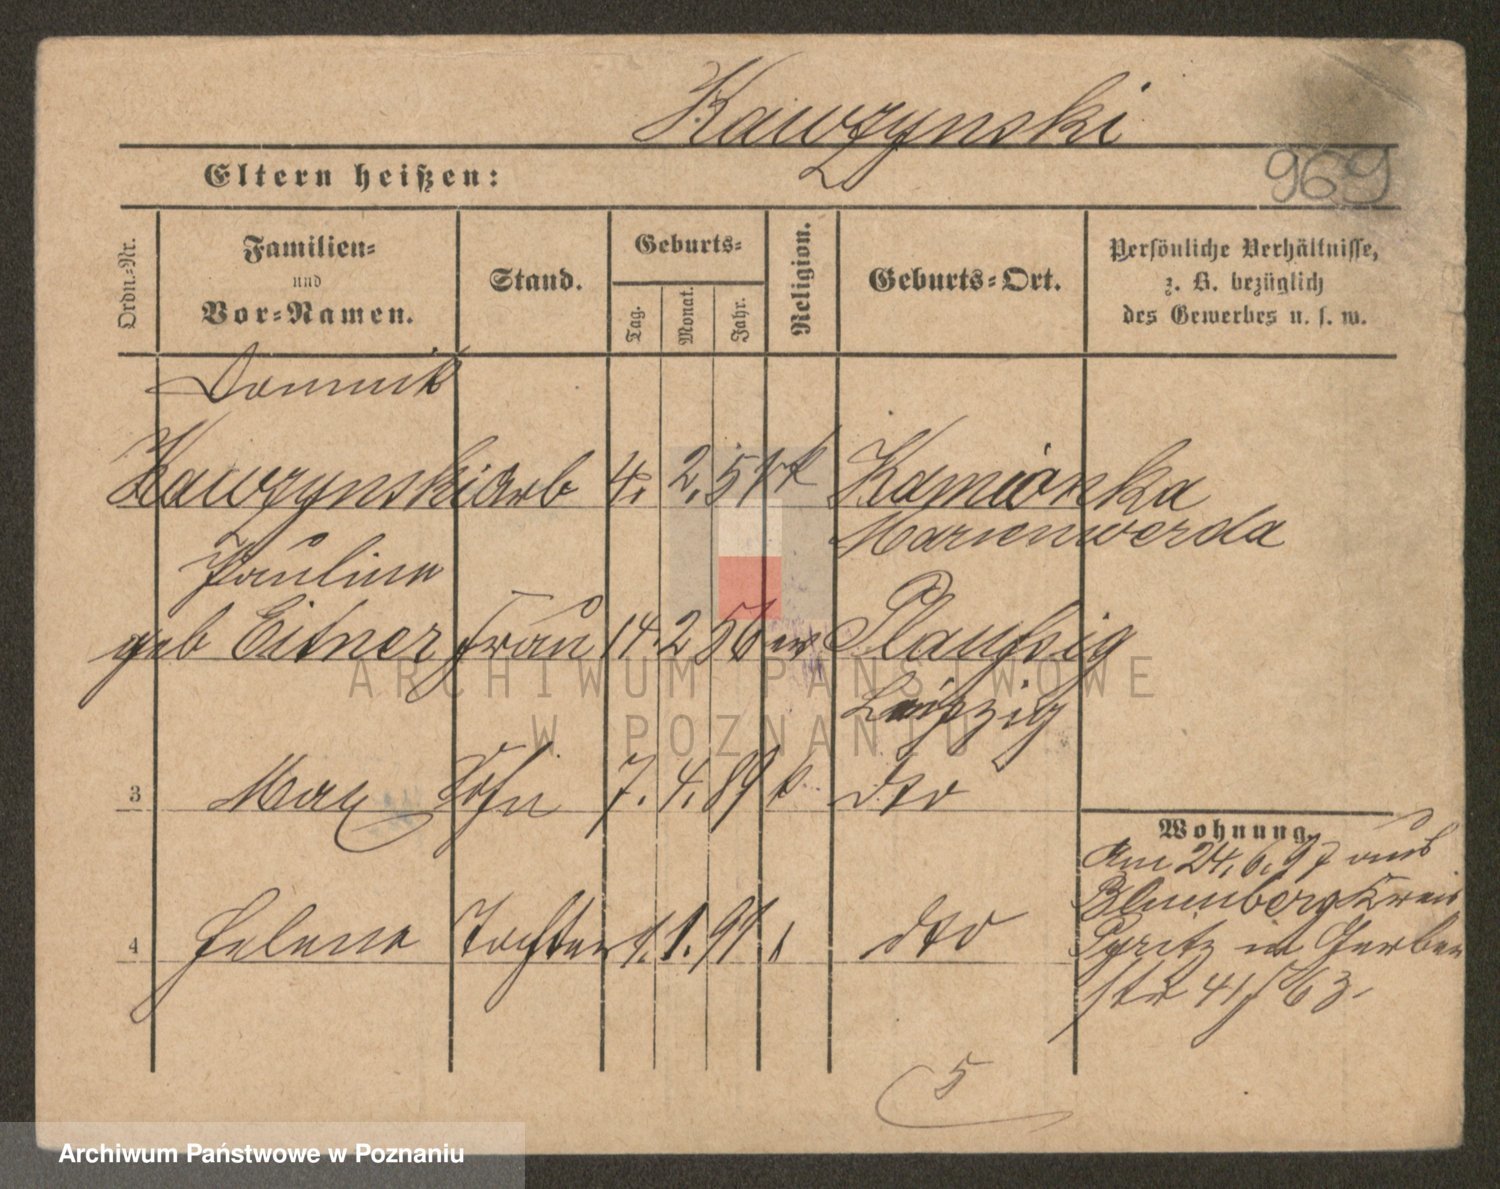 Kawzynski
Eltern heißen:
969
Ordn.-Nr.
Familien-
und
Vor-Namen.
Stand.
Geburts-
Tag.
Monat.
Jahr.
Religion.
Geburts-Ort.
Persönliche Verhältnisse,
z. B. bezüglich
des Gewerbes u. s. w.
Dominik
Kawzynski Arb 4. 2. 51 k Kamionka
Marienwerda
Pauline
geb Eitner Frau 14. 2 56 ev Plaußig
Leipzig
3 Max Sohn 7. 4. 89 k dto
4 Helene Tochter 1. 1. 91 dto
Wohnung.
Am 24. 6. 97 aus
Blumberg Kreis
Pyritz in Gerber
str 41/63.
5
ARCHIWUM PAŃSTWOWE
W POZNANIU
Archiwum Państwowe w Poznaniu